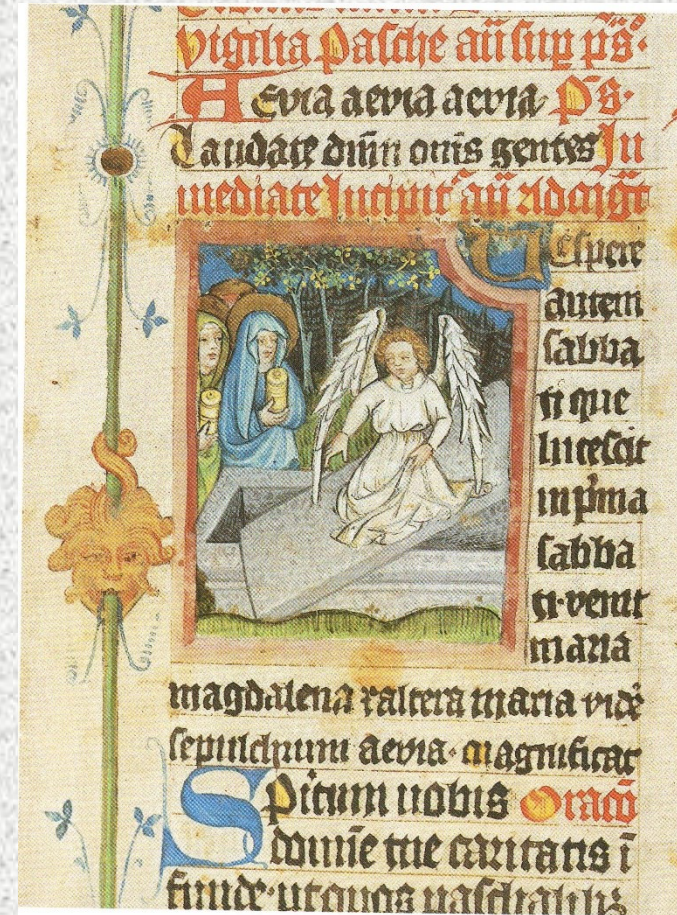 vigilia Pasche añ sup ps̄.
Aevia aevia aevia. Ps.
Laudate dn̄m om̄s gentes In
mediate Incipit añ
Vespere
autem
sabba
ti que
lucescit
in p̄ma
sabba
ti. venit
maria
magdalena ⁊ altera maria videˉ
sepulchrum aevia. magnificat
Spiritum nobis Oracō
domīe tue caritatis ī
funde. ut quos paschalibꝫ